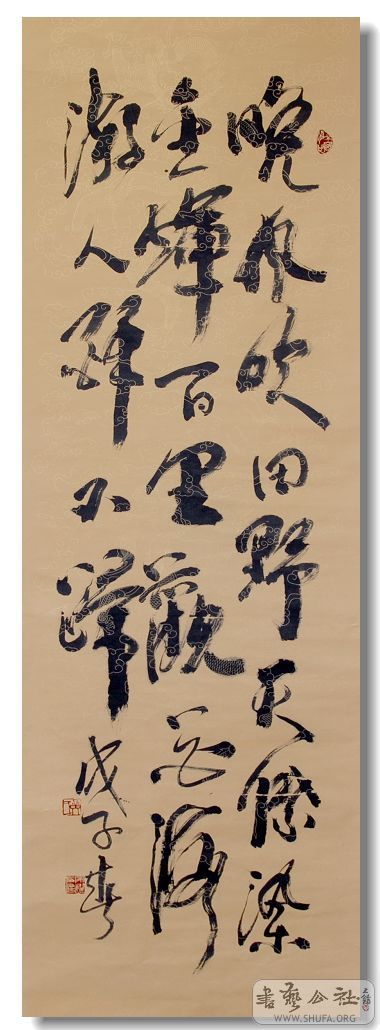 晚風吹田野天際染
金輝百里觀花海
游人醉不歸
戊子春
書藝公社
WWW.SHUFA.ORG